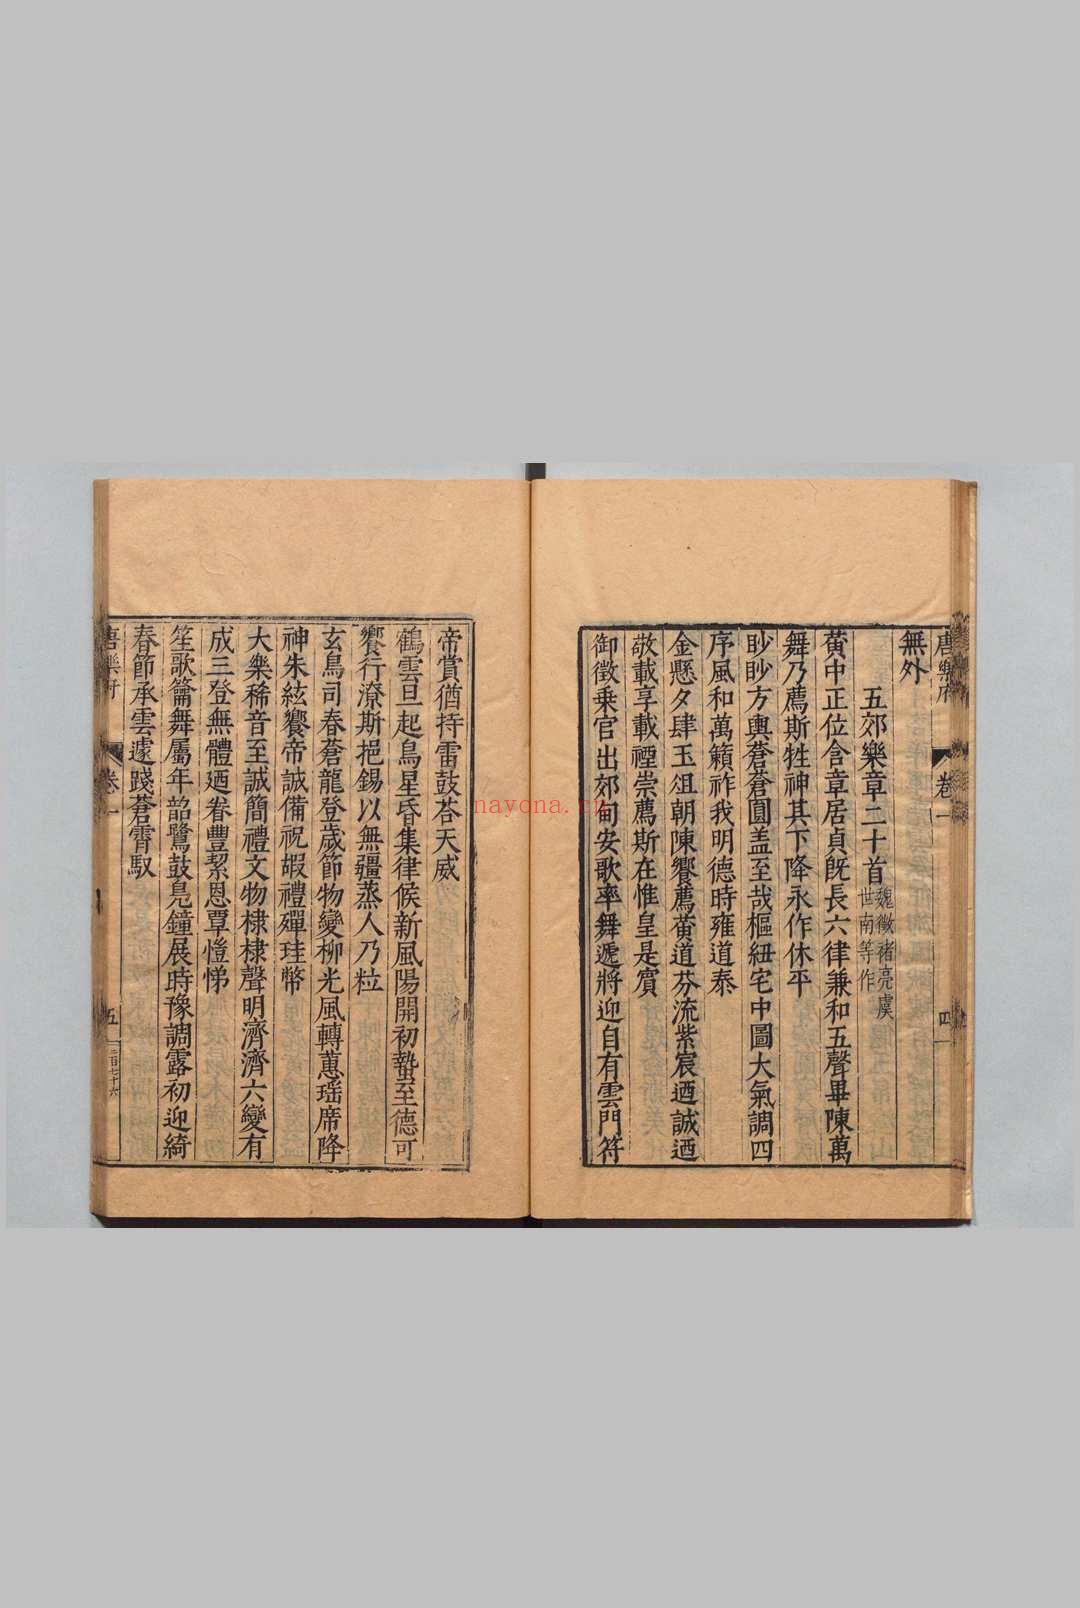 唐樂府 卷一 四
無外
五郊樂章二十首 魏徵褚亮虞世南等作
黃中正位含章居貞旣長六律兼和五聲畢陳萬
舞乃薦斯牲神其下降永作休平
眇眇方輿蒼蒼圓盖至哉樞紐宅中圖大氣調四
序風和萬籟祚我明德時雍道泰
金懸夕肆玉俎朝陳饗薦黃道芬流紫宸迺誠迺
敬載享載禋崇薦斯在惟皇是賓
御徵乘宮出郊甸安歌率舞遞將迎自有雲門符
帝賞猶持雷鼓荅天威
鶴雲旦起鳥星昏集律候新風陽開初蟄至德可
饗行潦斯挹錫以無疆蒸人乃粒
玄鳥司春蒼龍登歲節物變柳光風轉蕙瑤席降
神朱絃饗帝誠備祝嘏禮殫珪幣
大樂稀音至誠簡禮文物棣棣聲明濟濟六變有
成三登無體廼眷豐絜恩覃愷悌
笙歌籥舞屬年韶鷺鼓鳧鐘展時豫調露初迎綺
春節承雲遽踐蒼霄馭
唐樂府 卷一 五 二百七十六
nayona.cn